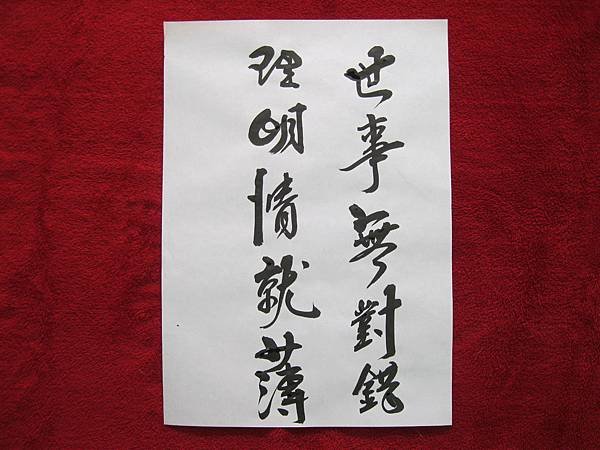 世事無對錯
理明情就薄